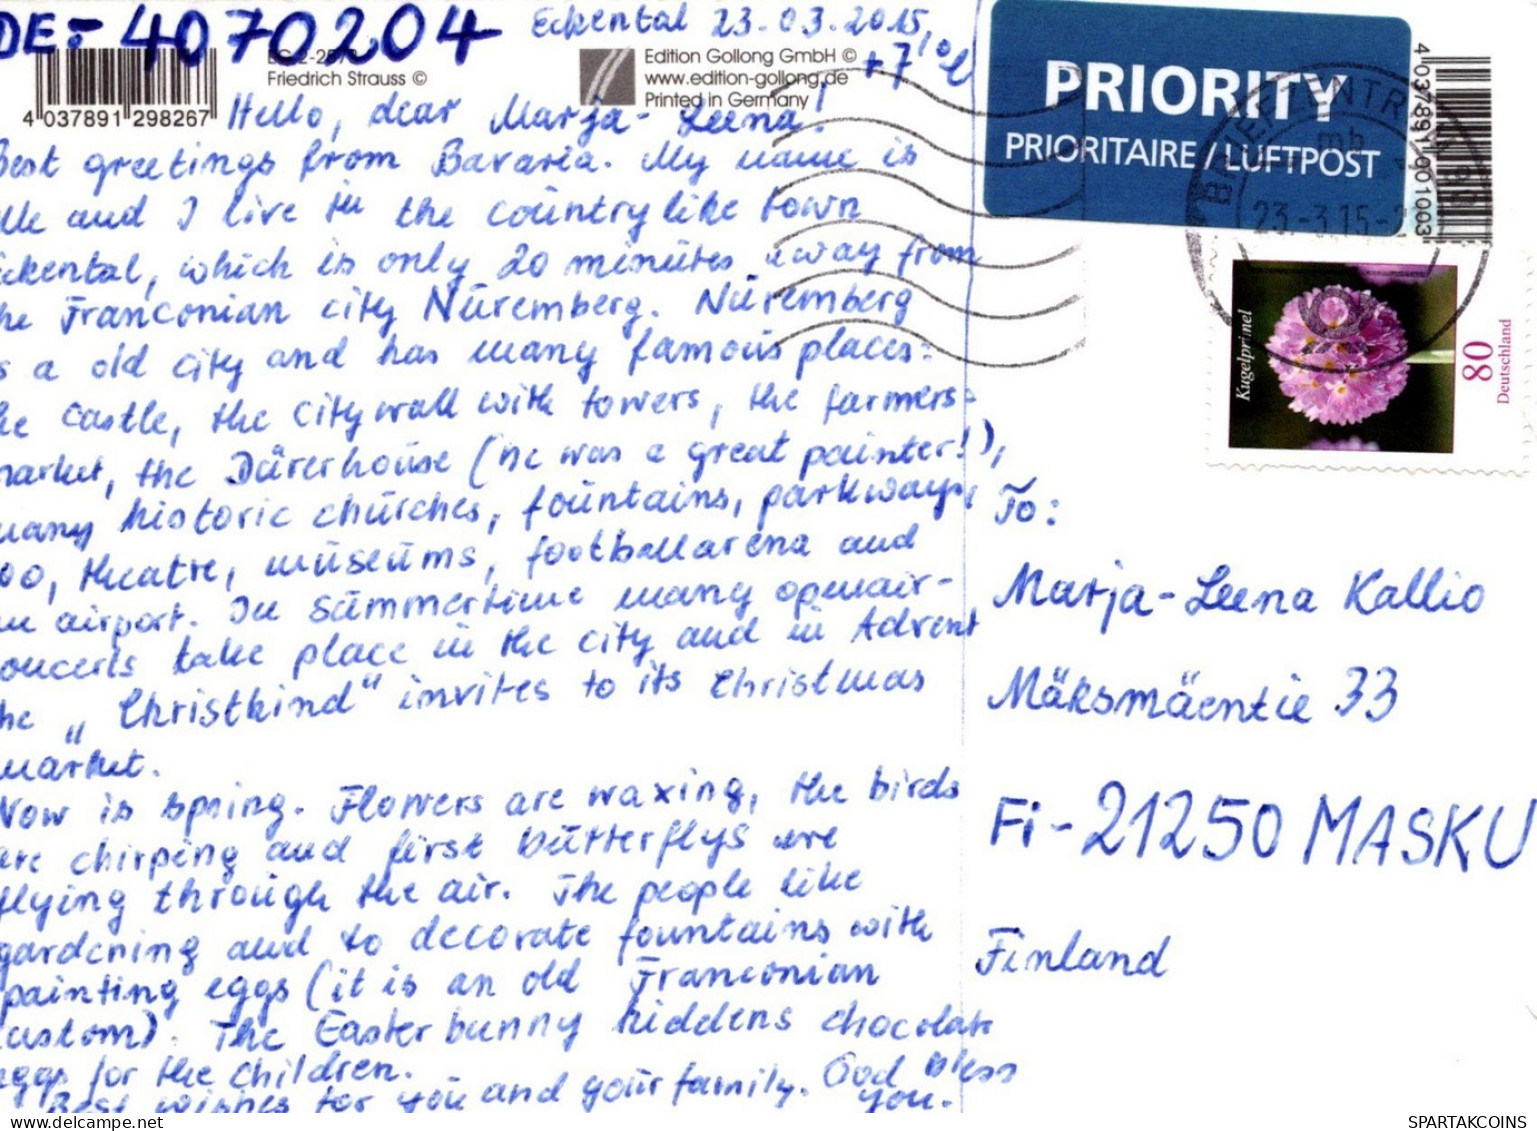 DE-4070204
Eckental 23.03.2015,
+7°C
Friedrich Strauss ©
4 037891 298267
Edition Gollong GmbH ©
www.edition-gollong.de
Printed in Germany
Hello, dear Marja-Leena!
Best greetings from Bavaria. My name is
and I live in the countrylike town
Eckental, which is only 20 minutes away from
the Franconian city Nuremberg. Nuremberg
is a old city and has many famous places:
the castle, the citywall with towers, the farmers-
market, the Dürerhouse (he was a great painter!),
many historic churches, fountains, parkways,
zoo, theatre, museums, footballarena and
an airport. In summertime many openair-
concerts take place in the city and in Advent
the „Christkind" invites to its Christmas
market.
Now is spring. Flowers are waxing, the birds
are chirping and first butterflys are
flying through the air. The people like
gardening and to decorate fountains with
painting eggs (it is an old Franconian
custom). The Easterbunny hiddens chocolate
eggs for the children.
Best wishes for you and your family. God bless
you.
PRIORITY
PRIORITAIRE / LUFTPOST
4 037891 001003
BRIEFZENTRUM
mb
23.-3.15-
Kugelprimel
80
Deutschland
To:
Marja-Leena Kallio
Mäksmäentie 33
Fi-21250 MASKU
Finland
SPARTAKCOINS